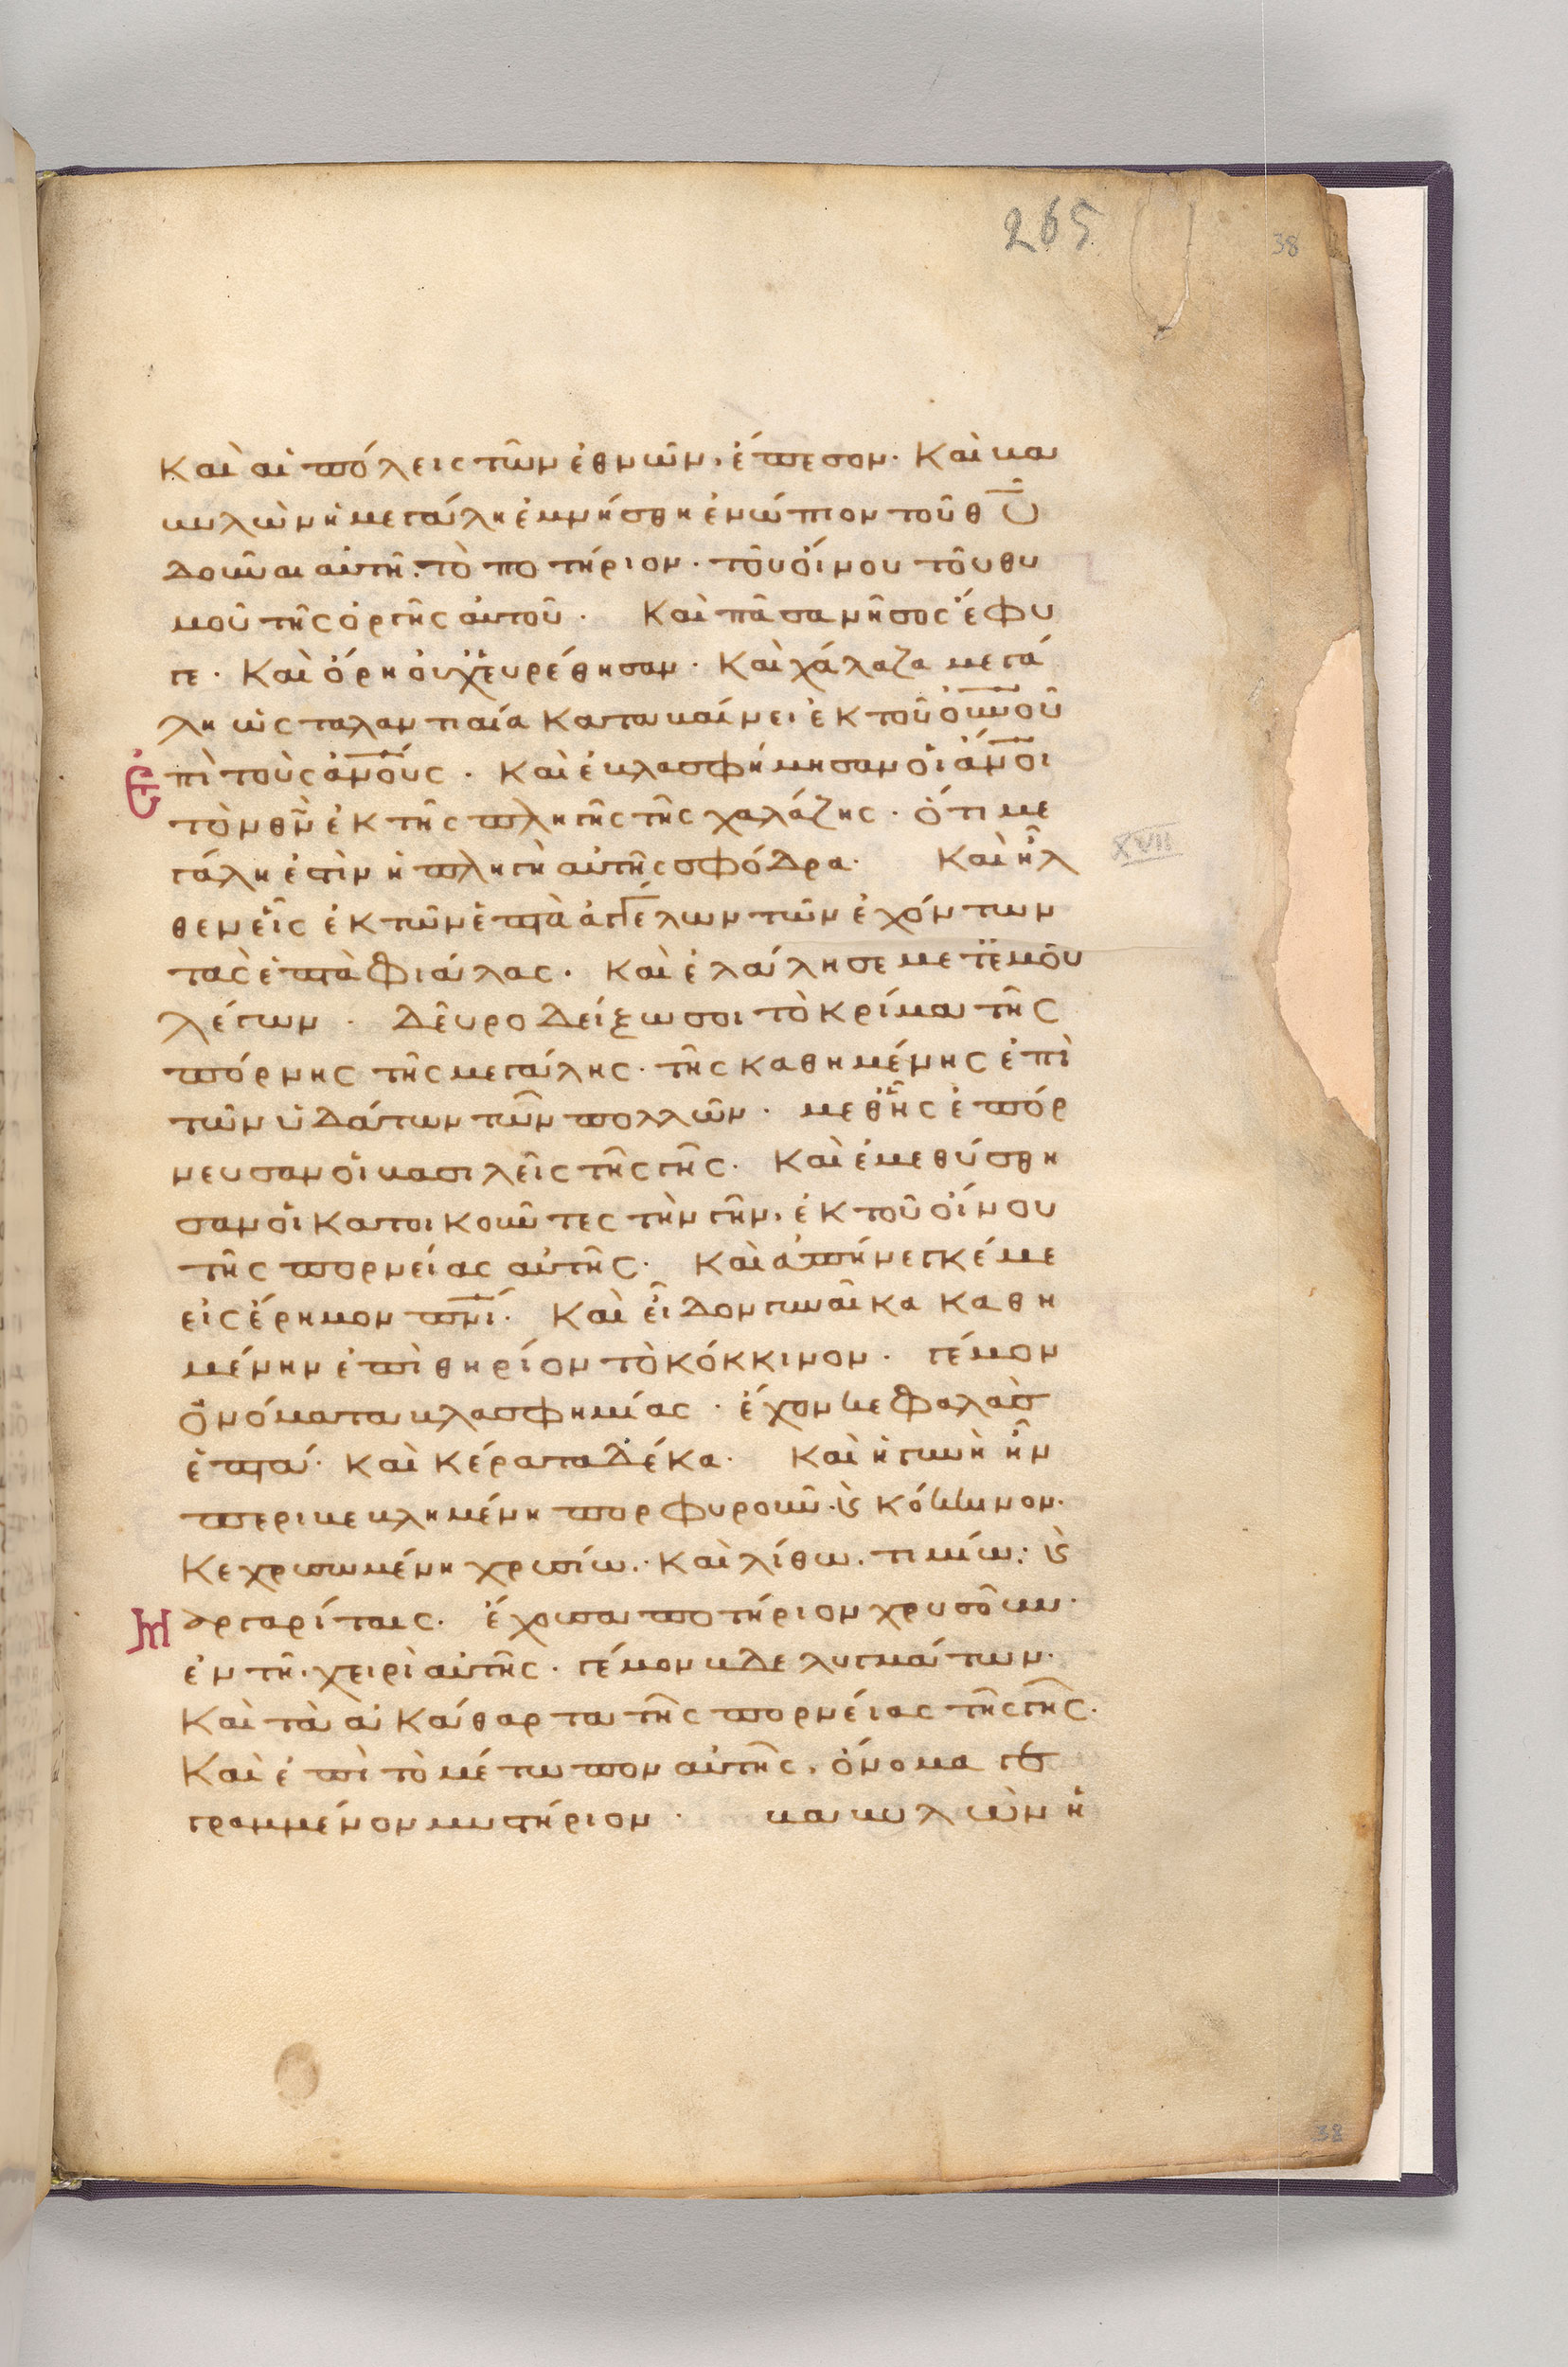 265
38
Καὶ αἱ πόλεις τῶν ἐθνῶν, ἔπεσον· Καὶ βα
βυλὼν ἡ μεγάλη ἐμνήσθη ἐνώπιον τοῦ θῦ
δοῦναι αὐτῆ· τὸ ποτήριον· τοῦ οἴνου τοῦ θυ
μοῦ τῆς ὀργῆς αὐτοῦ· Καὶ πᾶσα νῆσος ἔφυ
γε· Καὶ ὄρη οὐχ εὑρέθησαν· Καὶ χάλαζα μεγά
λη ὡς ταλαντιαία Καταβαίνει ἐκ τοῦ οὐνοῦ
Ἐπὶ τοὺς ἀνούς· Καὶ ἐβλασφήμησαν οἱ ἄνοι
τὸν θν ἐκ τῆς πληγῆς τῆς χαλάζης· ὅτι με
γάλη ἐστὶν ἡ πληγὴ αὐτῆς σφόδρα· Καὶ ἦλ
XVII
θεν εἷς ἐκ τῶν ἑπτὰ ἀγγέλων τῶν ἐχόντων
τὰς ἑπτὰ φιάλας· Καὶ ἐλάλησε μετ ἐμοῦ
λέγων· Δεῦρο δείξω σοι τὸ κρίμα τῆς
πόρνης τῆς μεγάλης· τῆς καθημένης ἐπὶ
τῶν ὑδάτων τῶν πολλῶν· μεθ ἧς ἐπόρ
νευσαν οἱ βασιλεῖς τῆς γῆς· Καὶ ἐμεθύσθη
σαν οἱ κατοικοῦντες τὴν γῆν, ἐκ τοῦ οἴνου
τῆς πορνείας αὐτῆς· Καὶ ἀπήνεγκέ με
εἰς ἔρημον πνι· Καὶ εἶδον γυναῖκα καθη
μένην ἐπὶ θηρίον τὸ κόκκινον· γέμον
ὀνόματα βλασφημίας· ἔχον κεφαλὰς
ἑπτά· καὶ κέρατα δέκα· Καὶ ἡ γυνὴ ἦν
περιβεβλημένη πορφυροῦν· ϗ κόκκινον·
Κεχρυσωμένη χρυσίω· Καὶ λίθω· τιμίω· ϗ
Μαργαρίταις· ἔχουσα ποτήριον χρυσοῦν·
ἐν τῆ· χειρὶ αὐτῆς· γέμον βδελυγμάτων·
Καὶ τὰ ἀκάθαρτα τῆς πορνείας τῆς γῆς·
Καὶ ἐπὶ τὸ μέτωπον αὐτῆς, ὄνομα γε
γραμμένον μυστήριον· βαβυλὼν ἡ
38